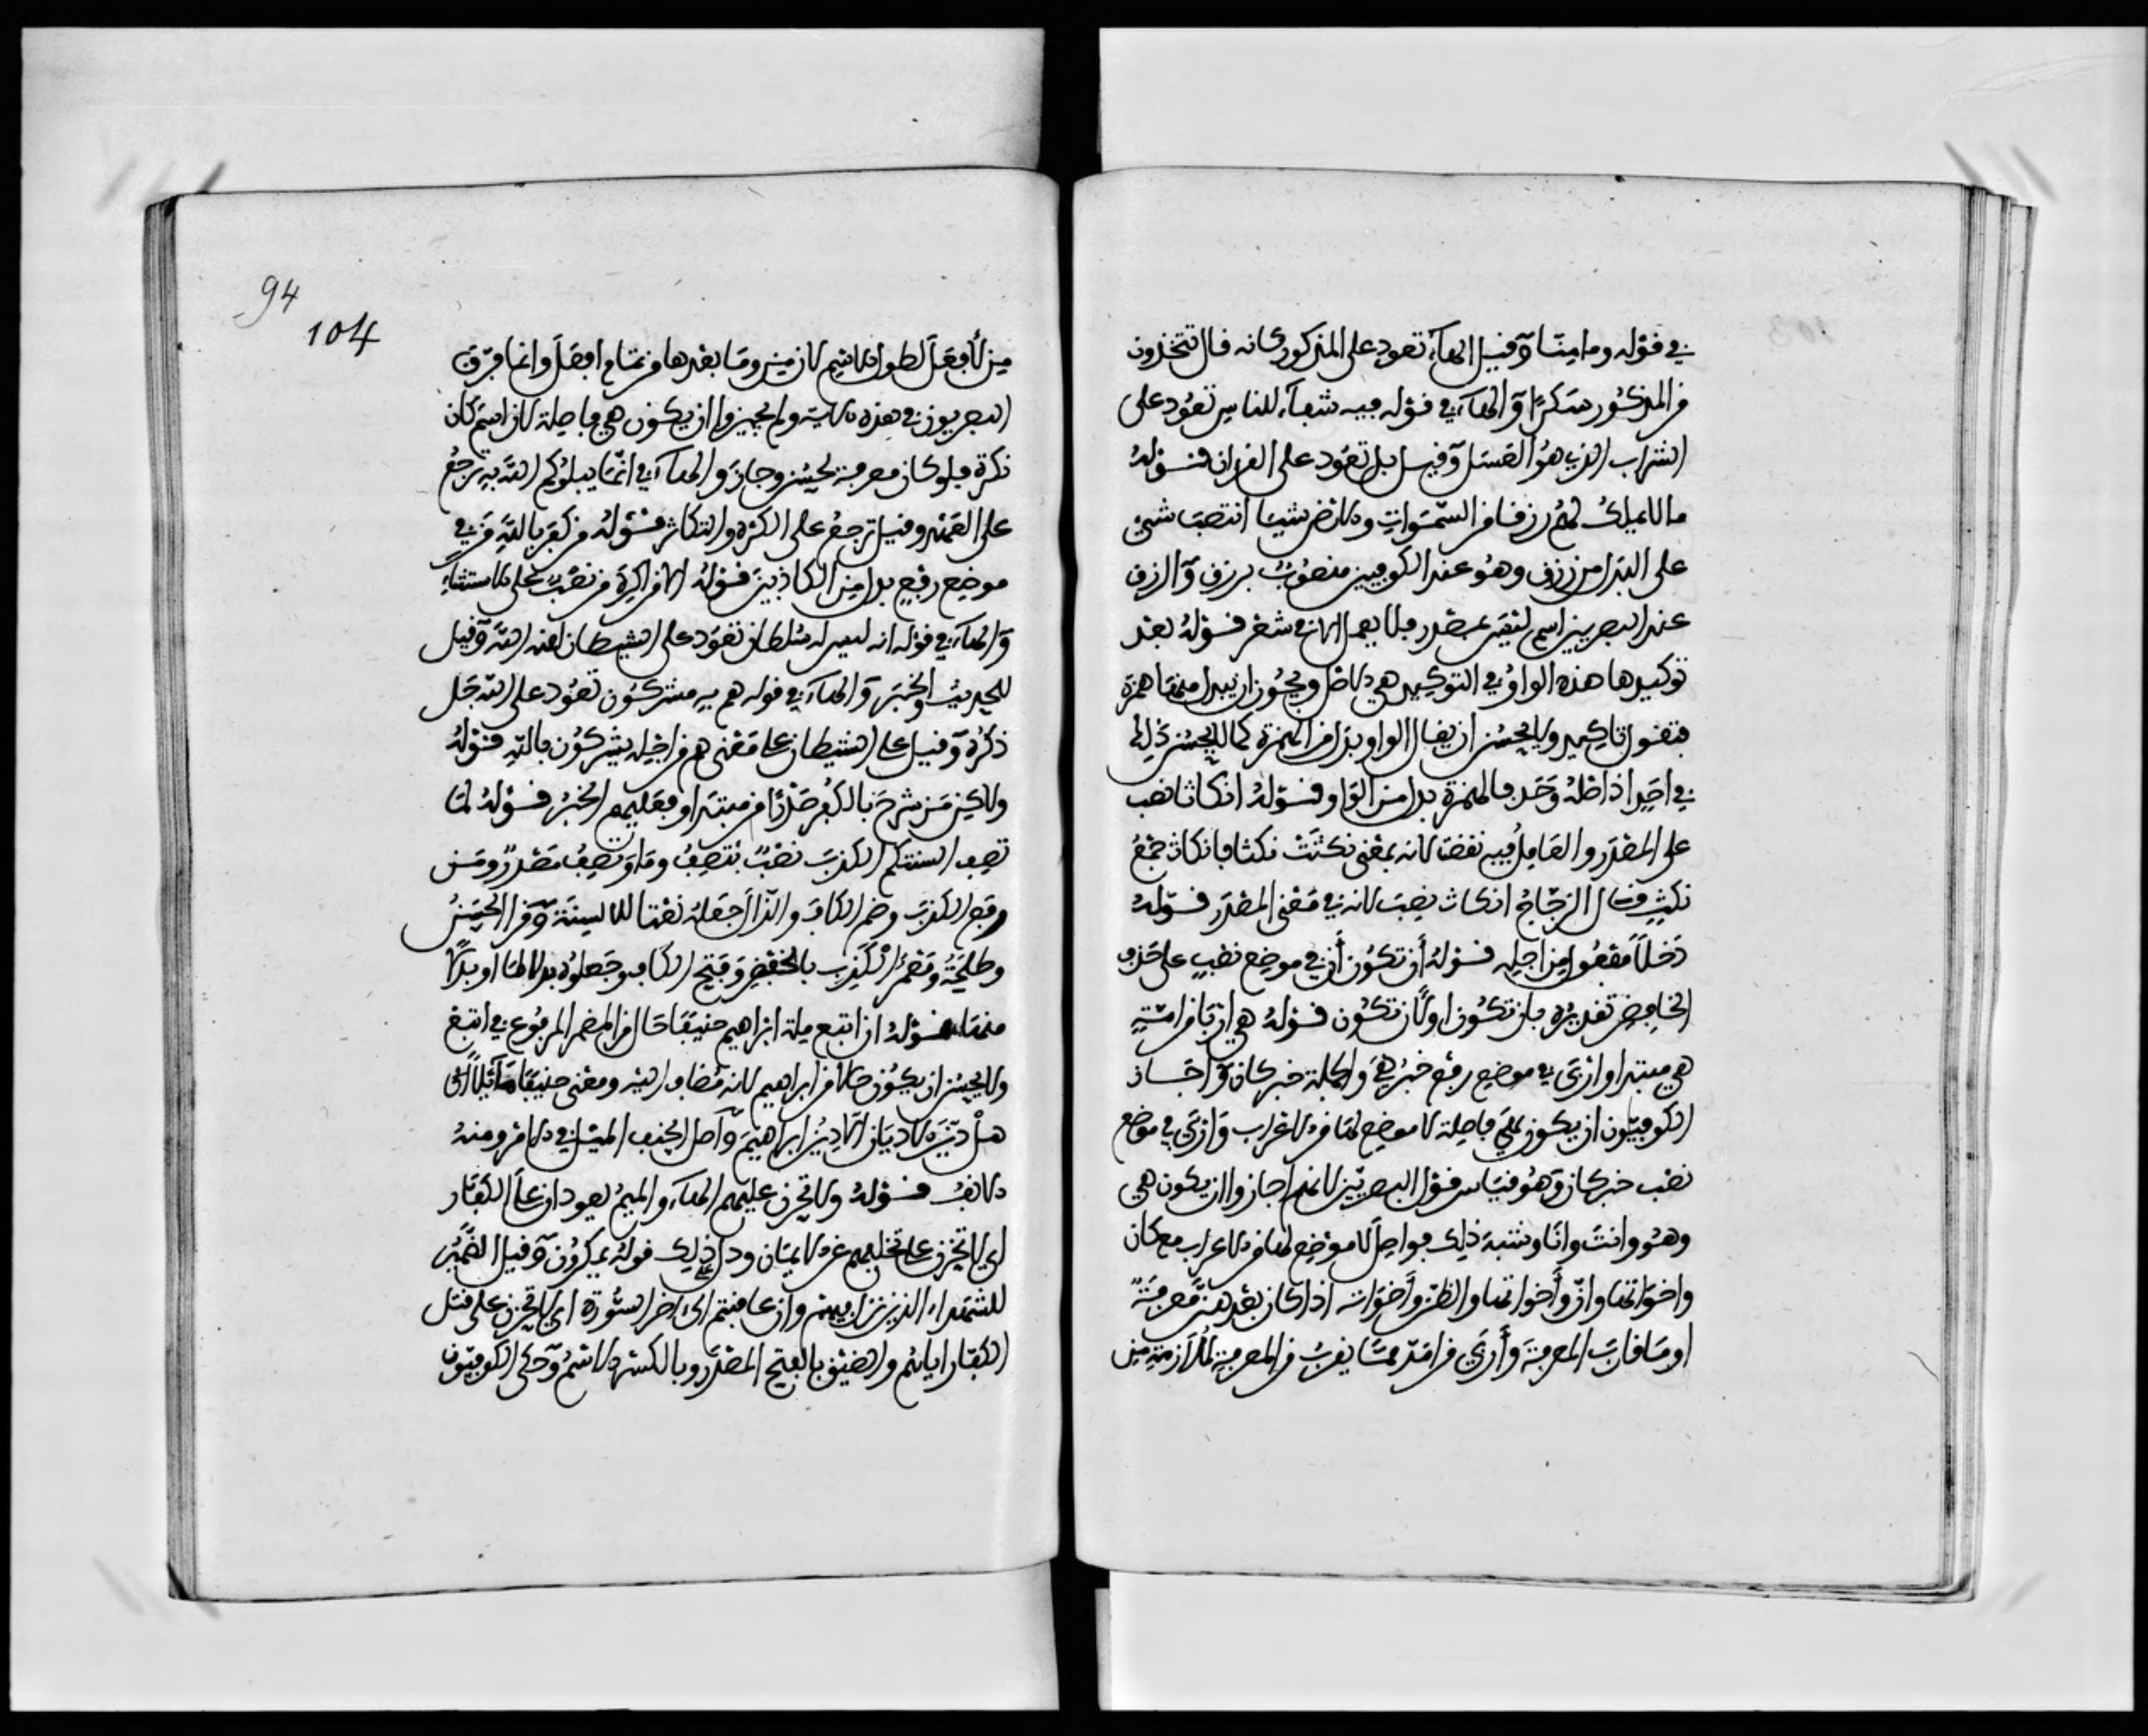 في قوله وما منا وقيل الهاء تعود على المذكور كانه قال تتخذون
من المذكور سكرا والهاء في قوله فيه شفاء للناس تعود على
الشراب الذي هو العسل وقيل بل تعود على القران قوله
ما لا يملك لهم رزقا من السموات والارض شيئا انتصب شيئ
على البدل من رزق وهو عند الكوفيين منصوب برزق والرزق
عند البصريين اسم ليس بمصدر فلا يعمل الا في شعر قوله بعد
توكيدها هذه الواو في التوكيد هي الاصل ويجوز ان يبدل منها همزة
فتقول تاكيد ولا يحسن ان يقال الواو بدل من الهمزة كما لا يحسن ذلك
في احد اذ اصله وحد فالهمزة بدل من الواو قوله انكاثا نصب
على المصدر والعامل فيه نقضت لانه بمعنى نكثت نكثا فانكاث جمع
نكث وقال الزجاج انكاث نصب لانه في معنى المصدر قوله
دخلا مفعول من اجله قوله أن تكون أن في موضع نصب على حذف
الخافض تقديره بان تكون او لان تكون قوله هي اربى من امة
هي مبتدا واربى في موضع رفع خبر هي والجملة خبر كان واجاز
الكوفيون ان يكون هي فاصلة لا موضع لها من الاعراب واربى في موضع
نصب خبر كان وهو قياس قول البصريين لانهم اجازوا ان يكون هي
وهو وانت وانا وشبه ذلك فواصل لا موضع لها من الاعراب مع كان
واخواتها وان وأخواتها والظن وأخواته اذا كان بعدهن معرفة
او ما قارب المعرفة وأربى من امة مما يقرب من المعرفة لملازمة من
94
104
من لأفعل لطول الاسم لان من وما بعدها من تمام افعل وانما فرق
البصريون في هذه الاية ولم يجيزوا ان يكون هي فاصلة لان اسم كان
نكرة فلو كان معرفة لحسن وجاز والهاء في انما يبلوكم الله به ترجع
على العهد وقيل ترجع على الكثرة والتكاثر قوله من كفر بالله من في
موضع رفع بدل من الكاذبين قوله الا من اكره من نصب على الاستثناء
والهاء في قوله انه ليس له سلطان تعود على الشيطان لعنه الله وقيل
للحديث والخبر والهاء في قوله هم به مشركون تعود على الله جل
ذكره وقيل على الشيطان على معنى هم من اجله يشركون بالله قوله
ولاكن من شرح بالكفر صدرا من مبتدا وفعليهم الخبر قوله لما
تصف السنتكم الكذب نصب بتصف وما وتصف مصدر ومن
رفع الكذب وضم الكاف والذال جعله نعتا للالسنة وقرا الحسن
وطلحة ومعمر الكذب بالخفض وفتح الكاف وجعلوه بدلا لما او بدلا
منها قوله ان اتبع ملة ابراهيم حنيفا حال من المضمر المرفوع في اتبع
ولا يحسن ان يكون حالا من ابراهيم لانه مضاف اليه ومعنى حنيفا مآئلا أي
هل دين الاديان الا دين ابراهيم وأصل الحنف الميل في الامر ومنه
الانف قوله ولا تحزن عليهم الهاء والميم يعودان على الكفار
اي لا تحزن على تخلفهم عن الايمان ودل على ذلك قوله يمكرون وقيل الضمير
للشهداء الذين نزل فيهم وان عاقبتم الى اخر السورة اي لا تحزن على قتل
الكفار اياهم والضيق بالفتح المصدر وبالكسر الاسم وحكى الكوفيون